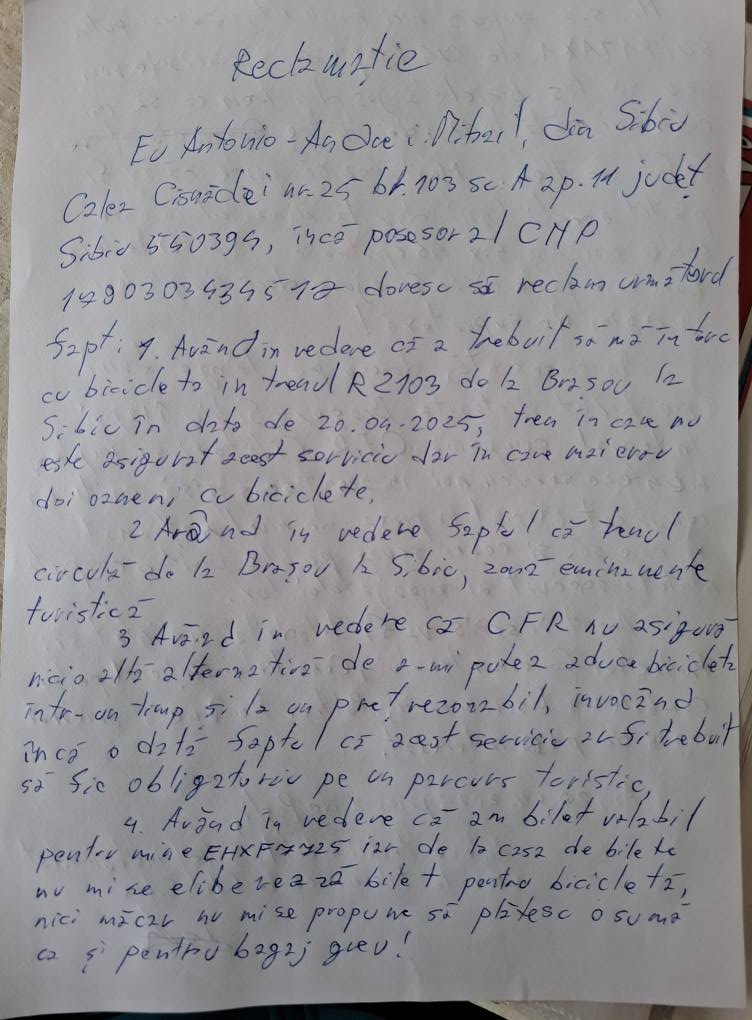 Reclamație
Eu Antonio-Andrei Mihail, din Sibiu
Calea Cisnădiei nr. 25 bl. 103 sc. A ap. 11 județ
Sibiu 550399, încă posesor al CNP
1790303434517 doresc să reclam următorul
fapt: 1. Având în vedere că a trebuit să mă întorc
cu bicicleta in trenul R2103 de la Brașov la
Sibiu în data de 20.04.2025, tren în care nu
este asigurat acest serviciu dar în care mai erau
doi oameni cu biciclete.
2 Având în vedere faptul că trenul
circulă de la Brașov la Sibiu, zonă eminamente
turistică
3 Având în vedere că CFR nu asigură
nicio altă alternativă de a-mi putea aduce bicicleta
într-un timp și la un preț rezonabil, invocând
încă o dată faptul că acest serviciu ar fi trebuit
să fie obligatoriu pe un parcurs turistic,
4. Având în vedere că am bilet valabil
pentru mine EHXF7725 iar de la casa de bilete
nu mi se eliberează bilet pentru bicicletă,
nici măcar nu mi se propune să plătesc o sumă
ca și pentru bagaj greu!